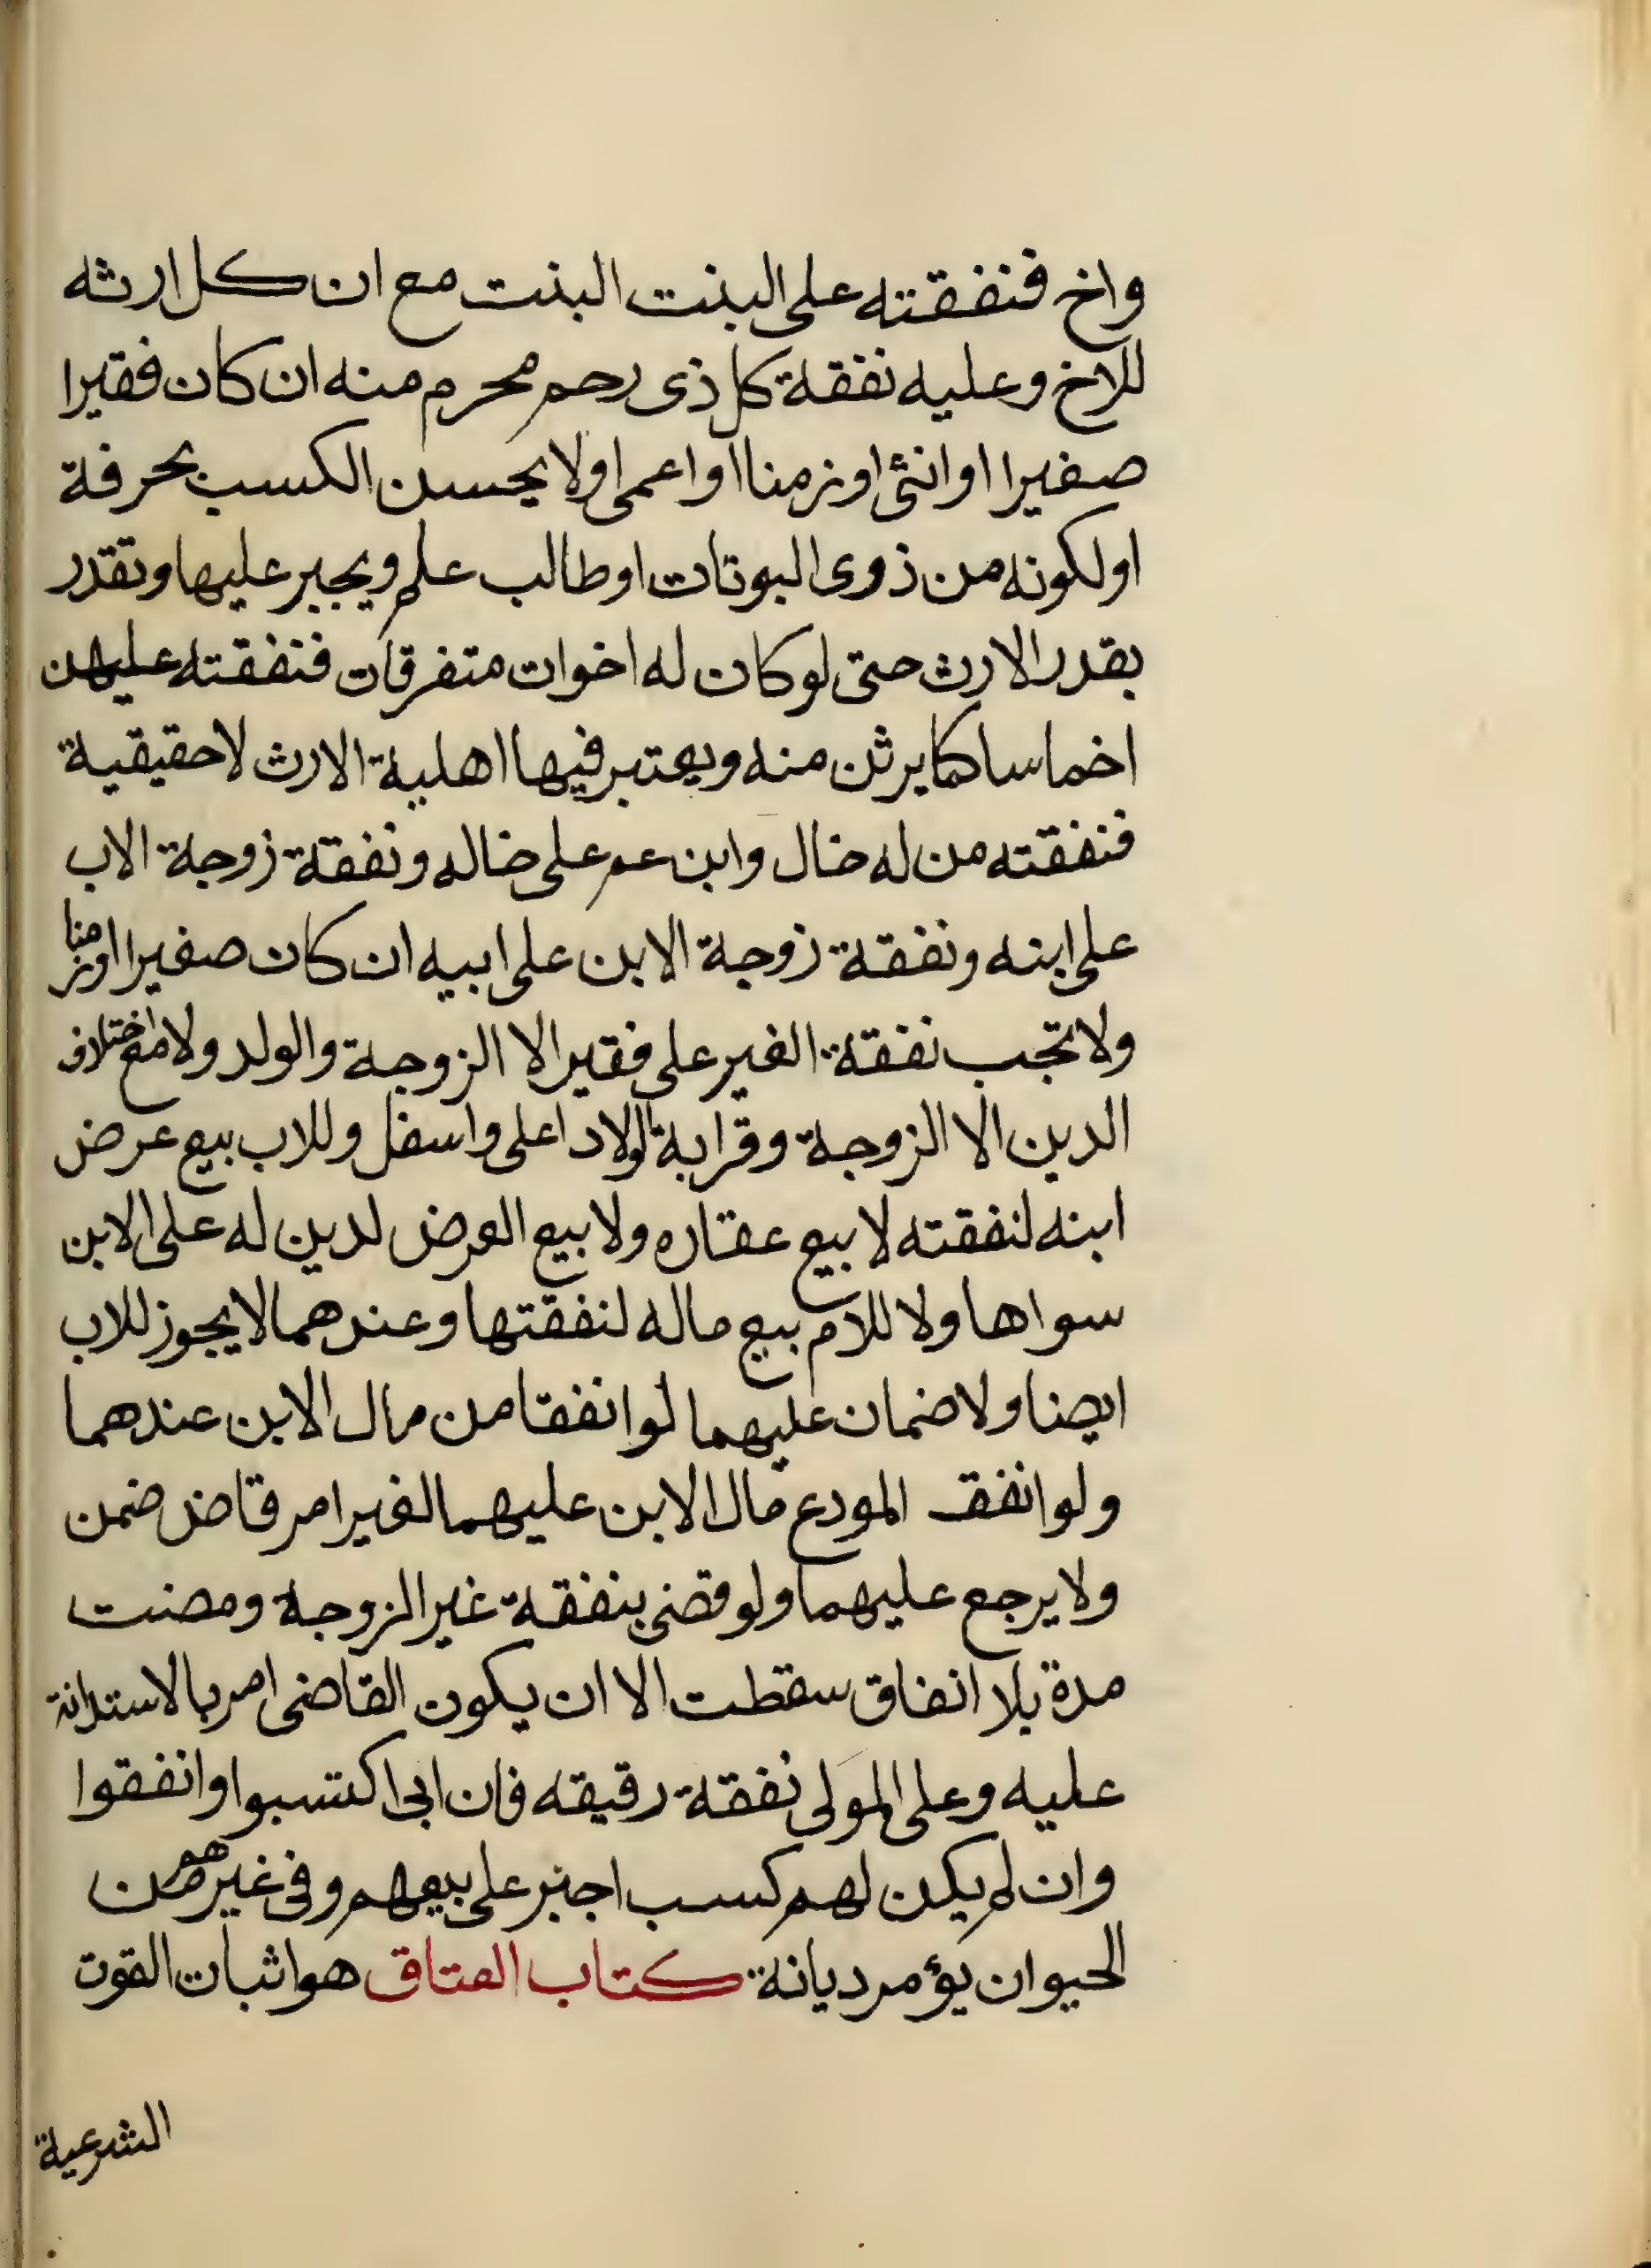 واخ فنفقته على البنت البنت مع ان كل ارثه
للاخ وعليه نفقة كل ذى رحم محرم منه ان كان فقيرا
صغيرا او انثى او زمنا او اعمى او لا يحسن الكسب بحرفة
او لكونه من ذوى البوتات او طالب علم ويجبر عليها وتقدر
بقدر الارث حتى لو كان له اخوات متفرقات فنفقته عليهن
اخماسا كما يرثن منه ويعتبر فيها اهلية الارث لا حقيقية
فنفقته من له خال وابن عم على خاله ونفقة زوجة الاب
على ابنه ونفقة زوجة الابن على ابيه ان كان صغيرا او زمنا
ولا تجب نفقة الغير على فقير الا الزوجة والولد ولا مع اختلاف
الدين الا الزوجة وقرابة الولاد اعلى واسفل وللاب بيع عرض
ابنه لنفقته لا بيع عقاره ولا بيع العرض لدين له على الابن
سواها ولا للام بيع ماله لنفقتها وعندهما لا يجوز للاب
ايضا ولا ضمان عليهما لو انفقا من مال الابن عندهما
ولو انفق المودع مال الابن عليهما لغير امر قاض ضمن
ولا يرجع عليهما ولو قضى بنفقة غير الزوجة ومضت
مدة بلا انفاق سقطت الا ان يكون القاضى امر بالاستدانة
عليه وعلى المولى نفقة رقيقه فان ابى اكتسبوا وانفقوا
وان لم يكن لهم كسب اجبر على بيعهم وفى غيرهم من
الحيوان يؤمر ديانة كتاب العتاق هو اثبات القوت
الشرعية